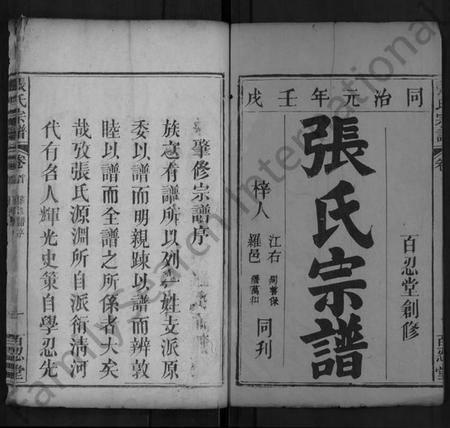 同治元年壬戌
百忍堂創修
張氏宗譜
梓人
江右
羅邑
同刊
百忍堂
肇修宗譜序
族之有譜所以列一姓支派原
委以譜而明親踈以譜而辨敦
睦以譜而全譜之所係者大矣
哉攷張氏源淵所自派衍清河
代有名人輝光史策自學忍先
張氏宗譜
卷首
百忍堂
FamilySearch International